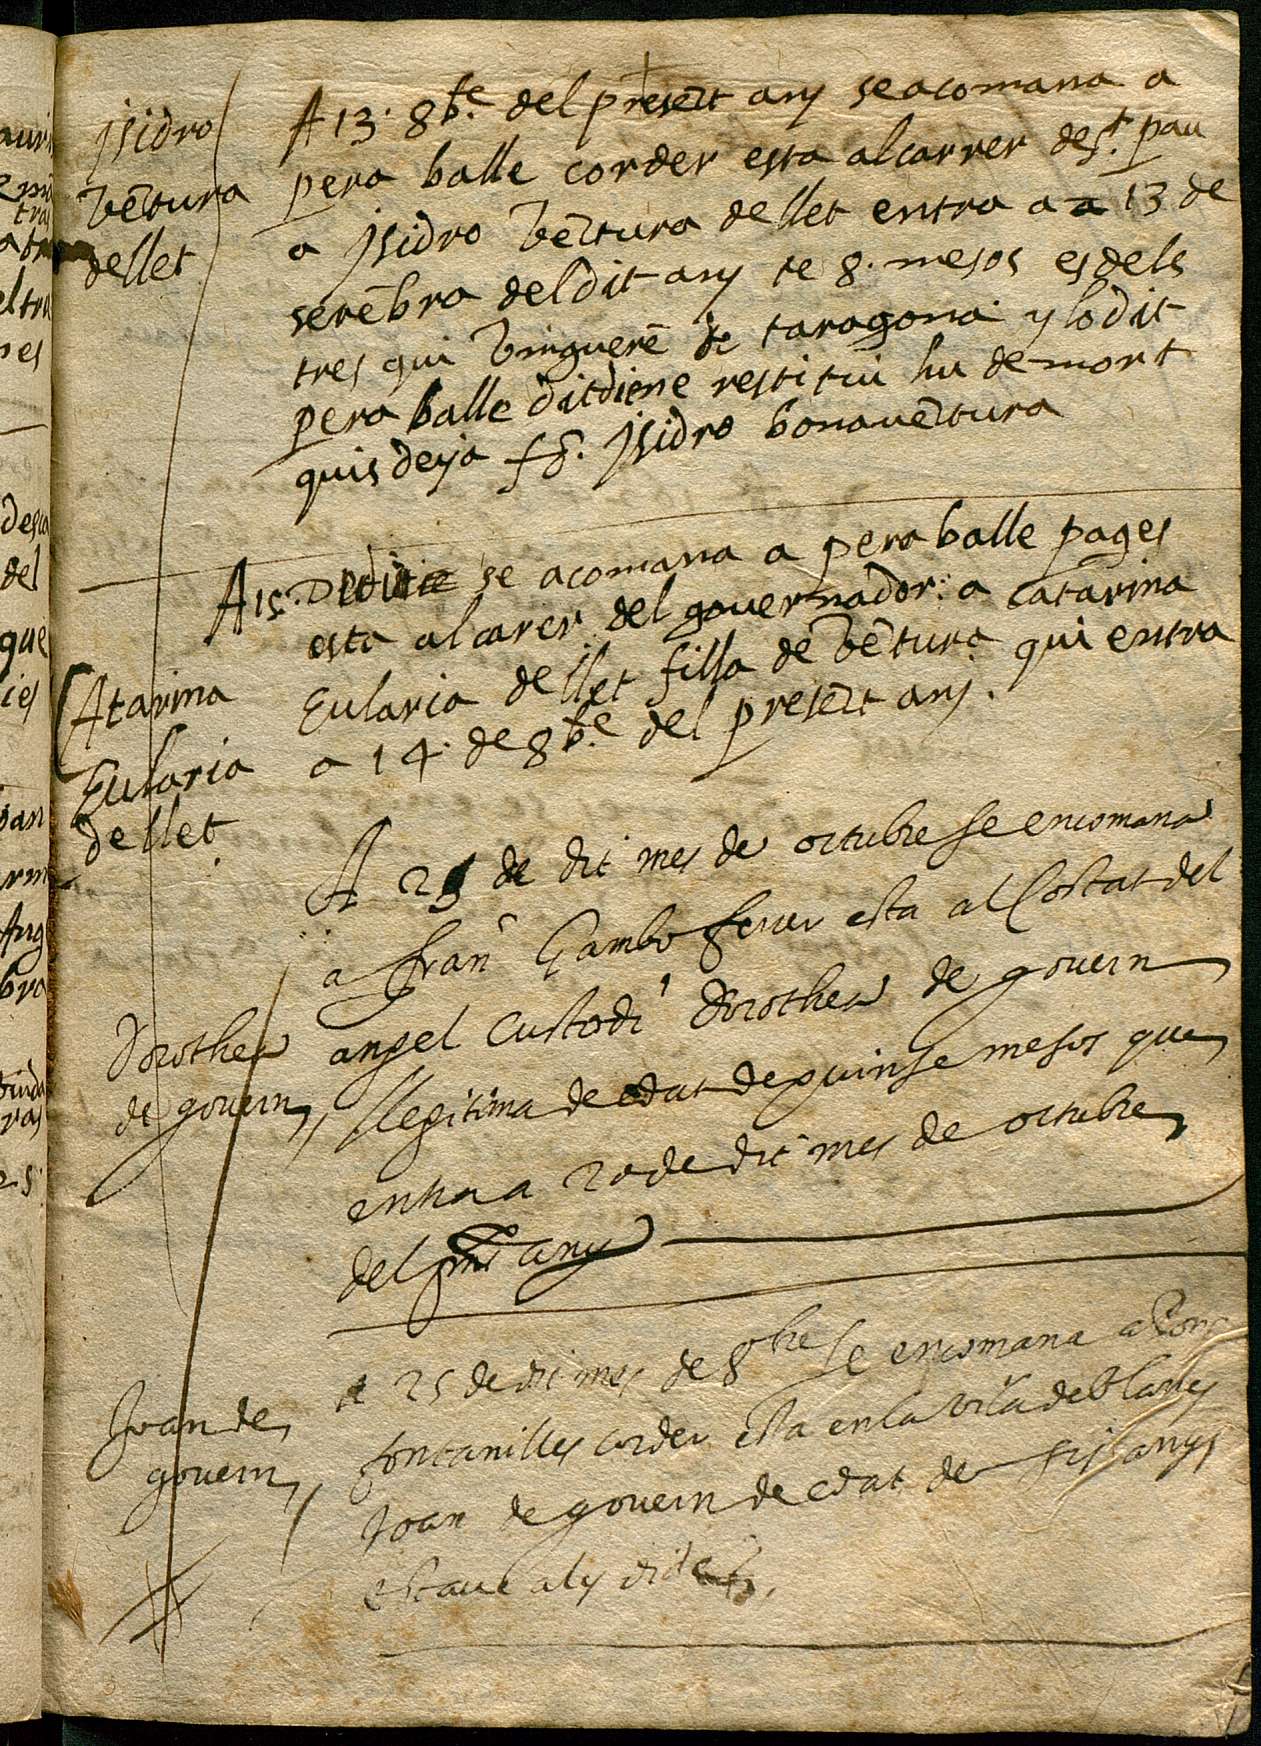 Isidro
Vẽtura
de llet
A 13. 8b.e del presẽt any se acomana a
pera balle corder esta al carrer de s.t pau
a Isidro Vẽtura de llet entra a a 13 de
setẽbra del dit any te 8. mesos es dels
tres qui vinguerẽ de taragona y lo dit
pera balle dit die ne restitui hu de mort
quis deya Isidro bonavẽtura
A 15. se acomana a pera balle pages
esta al carer del governador. a Catarina
Eularia de llet filla de Vẽtura qui entra
a 14. de 8b.e del presẽt any.
Catarina
Eularia
de llet
A 25 de dit mes de octubre se encomana
a Fran Gambo ferrer esta al Costat del
angel Custodi Dorothea de govern
llegitima de edat de quinse mesos que
entra a 20 de dit mes de octubre
del pnt any
Dorothea
de govern
A 25 de dit mes de 8bre se encomana a
fontanilles corder esta en la vila de blanes
Joan de govern de edat de sis anys
estave als
Joan de
govern